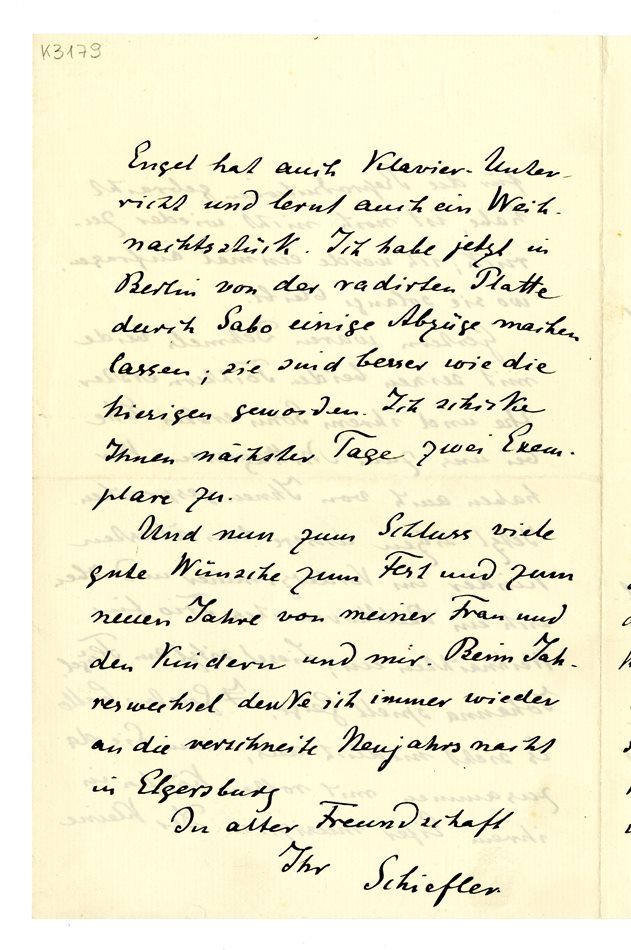 K3179
Engel hat auch Klavier-Unter-
richt und lernt auch ein Weih-
nachtsstück. Ich habe jetzt in
Berlin von der radirten Platte
durch Sabo einige Abzüge machen
lassen; sie sind besser wie die
hiesigen geworden. Ich schicke
Ihnen nächster Tage zwei Exem-
plare zu.
Und nun zum Schluss viele
gute Wünsche zum Fest und zum
neuen Jahre von meiner Frau und
den Kindern und mir. Beim Jah-
reswechsel denke ich immer wieder
an die verschneite Neujahrsnacht
in Elgersburg
In alter Freundschaft
Ihr
Schiefler